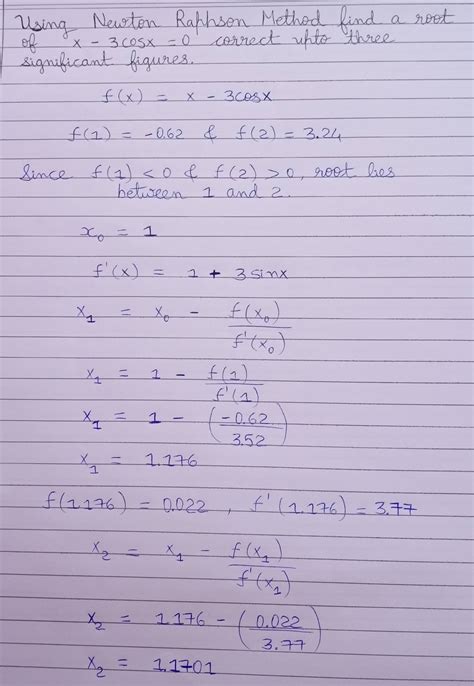 Using Newton Raphson Method find a root
of x - 3cosx = 0 correct upto three
significant figures.
f(x) = x - 3cosx
f(1) = -0.62 & f(2) = 3.24
Since f(1) < 0 & f(2) > 0, root lies
between 1 and 2.
x₀ = 1
f'(x) = 1 + 3sinx
x₁ = x₀ - f(x₀)/f'(x₀)
x₁ = 1 - f(1)/f'(1)
x₁ = 1 - (-0.62/3.52)
x₁ = 1.176
f(1.176) = 0.022 , f'(1.176) = 3.77
x₂ = x₁ - f(x₁)/f'(x₁)
x₂ = 1.176 - (0.022/3.77)
x₂ = 1.1701